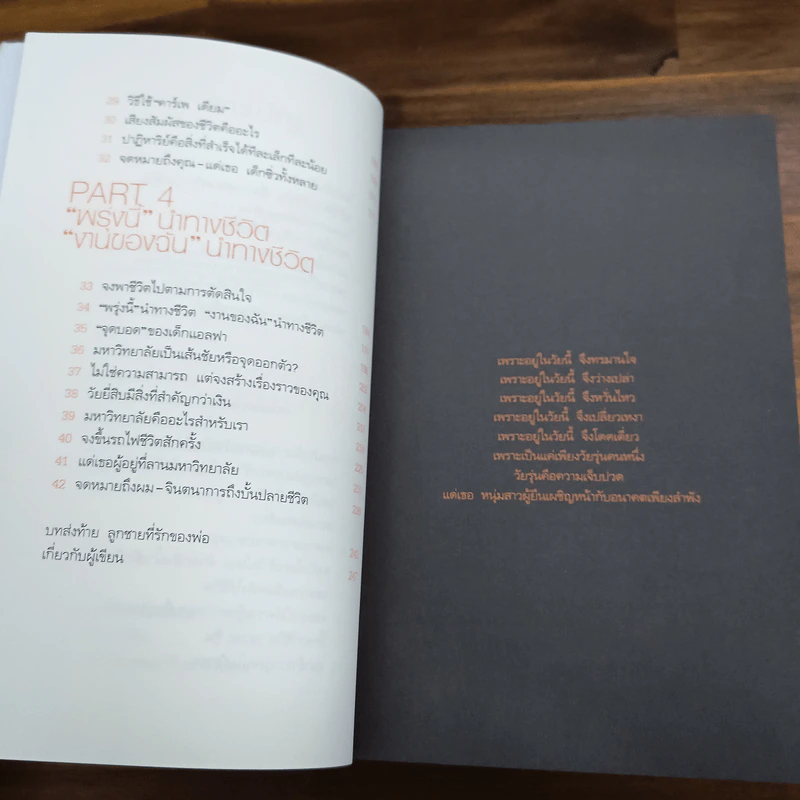 29 วิธีใช้ "คาร์เพ เดียม"
30 เสียงสัมผัสของชีวิตคืออะไร
31 ปาฏิหาริย์คือสิ่งที่สำเร็จได้ทีละเล็กทีละน้อย
32 จดหมายถึงคุณ – แด่เธอ เด็กซิ่วทั้งหลาย
PART 4
"พรุ่งนี้" นำทางชีวิต
"งานของฉัน" นำทางชีวิต
33 จงพาชีวิตไปตามการตัดสินใจ
34 "พรุ่งนี้" นำทางชีวิต "งานของฉัน" นำทางชีวิต
35 "จุดบอด" ของเด็กแอลฟา
36 มหาวิทยาลัยเป็นเส้นชัยหรือจุดออกตัว?
37 ไม่ใช่ความสามารถ แต่จงสร้างเรื่องราวของคุณ
38 วัยยี่สิบมีสิ่งที่สำคัญกว่าเงิน
39 มหาวิทยาลัยคืออะไรสำหรับเรา
40 จงขึ้นรถไฟชีวิตสักครั้ง
41 แด่เธอผู้อยู่ที่ลานมหาวิทยาลัย
42 จดหมายถึงผม – จินตนาการถึงบั้นปลายชีวิต
บทส่งท้าย ลูกชายที่รักของพ่อ
เกี่ยวกับผู้เขียน
เพราะอยู่ในวัยนี้ จึงทรมานใจ
เพราะอยู่ในวัยนี้ จึงว่างเปล่า
เพราะอยู่ในวัยนี้ จึงหวั่นไหว
เพราะอยู่ในวัยนี้ จึงเปลี่ยวเหงา
เพราะอยู่ในวัยนี้ จึงโดดเดี่ยว
เพราะเป็นแค่เพียงวัยรุ่นคนหนึ่ง
วัยรุ่นคือความเจ็บปวด
แด่เธอ หนุ่มสาวผู้ยืนเผชิญหน้ากับอนาคตเพียงลำพัง